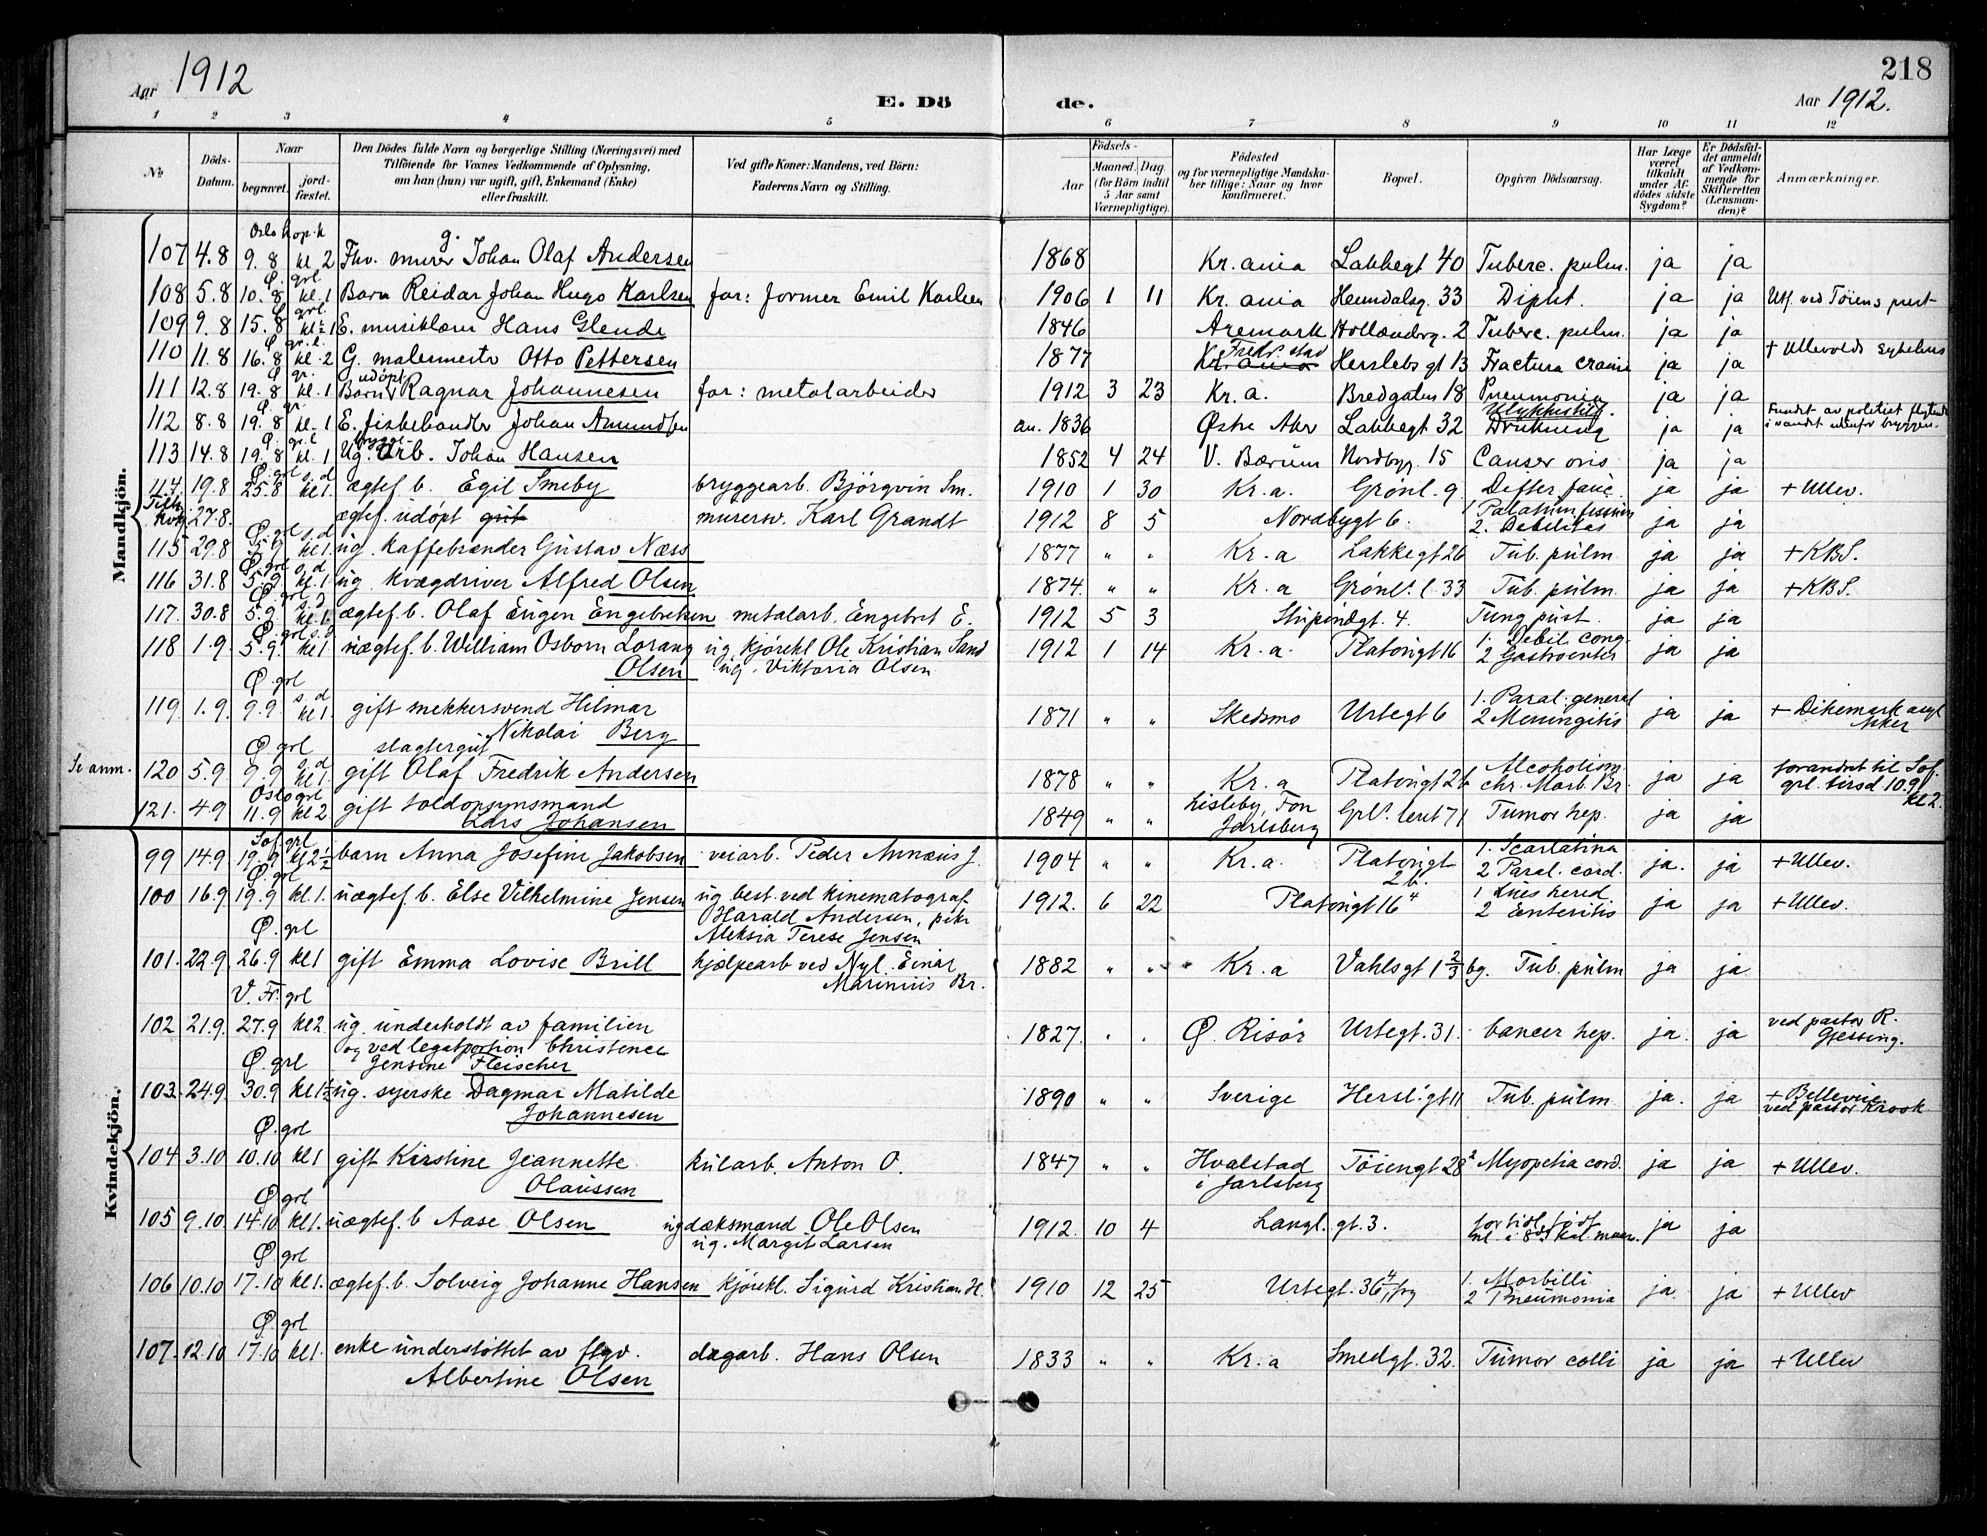 218
Aar 1912
E. Döde.
Aar 1912.
1 2 3 4 5 6 7 8 9 10 11 12
No
Döds-Datum.
Naar
begravet.
jordfæstet.
Den Dödes fulde Navn og borgerlige Stilling (Næringsvei) med
Tilföiende for Voxnes Vedkommende af Oplysning,
om han (hun) var ugift, gift, Enkemand (Enke)
eller fraskilt.
Ved gifte Koner: Mandens, ved Börn:
Faderens Navn og Stilling.
Födsels-
Aar
Maaned. Dag.
(for Börn indtil
5 Aar samt
Værnepligtige).
Födested
og for værnepligtige Mandskaber tillige: Naar og hvor
konfirmeret.
Bopæl.
Opgiven Dödsaarsag.
Har Læge
været
tilkaldt
under Afdödes sidste
Sygdom?
Er Dödsfaldet anmeldt
af Vedkommende for
Skifteretten
(Lensmanden)?
Anmærkninger.
Mandkjön.
Oslo kap. k
107 4.8 9.8 kl. 2 Fhv. murer g. Johan Olaf Andersen 1868 Kr.ania Lakkegt 40 Tuberc. pulm. ja ja
Ø. grl.
108 5.8 10.8 kl. 1 Barn Reidar Johan Hugo Karlsen far: former Emil Karlsen 1906 1 11 Kr.ania Heimdalsg. 33 Dipht. ja ja Utf. ved Töiens prest
109 9.8 15.8 kl ½ 1 E. musiklærer Hans Glende 1846 Aremark Hollænderg. 2 Tuberc. pulm. ja ja
110 11.8 16.8 kl. 2 G. malermester Otto Pettersen 1877 Kr.ania Fredr.stad Herslebs gt 13 Fractura cranii ja ja + Ullevolds sykehus
Ø gr.
111 12.8 19.8 kl. 1 Barn udöpt Ragnar Johannesen far: metalarbeider 1912 3 23 Kr.a. Bredgaten 18 Pneumonia ja ja
112 8.8 19.8 kl. 1 E. fiskehandler Johan Amundsen an. 1836 Østre Aker Lakkegt 32 Drukning ja ja Fundet av politiet flytende i vandet utenfor bryggen.
113 14.8 19.8 kl. 1 Ug. brygge arb. Johan Hansen 1852 4 24 V. Bærum Nordbyg. 15 Canser oris ja ja
Ø. grl s. d
114 19.8 25.8 kl 1. ægtef b. Egil Smeby bryggearb. Björgvin Sm. 1910 1 30 Kr.a. Grønl. 9 Difter fauc. ja ja + Ullev.
27.8. ægtef. udöpt gut murersv. Karl Grandt 1912 8 5 Nordbygt 6. 1 Palatum fissum 2. Debilitas ja ja
Ø. grl s. d
115 29.8 kl 1. ug. kaffebrænder Gustav Næss 1877 " " Kr.a Lakkegt 26 Tub. pulm. ja ja + KBS.
Ø. grl s. d
116 31.8 5.9 kl. 1 ug. kvægdriver Alfred Olsen 1874. " " Kr.a Grönl. l. 33 Tub. pulm ja ja + KBS.
117. 30.8 5.9 kl. 1 ægtef. b. Olaf Eugen Engebretsen metalarb. Engebret E. 1912 5 3 Stupendgt. 4. Tung pust. ja ja
Ø. grl s. d
118 1.9. 5.9 kl 1 uægtef. b. William Osborn Lorang Olsen ug. kjörekl Ole Kristian Sand ug. Viktoria Olsen 1912 1 14 Kr.a. Platougt 16 1. Debil. cong. 2 Gastroenter ja ja
Ø. grl
119. 1.9. 9.9 s. d kl 1. gift snekkersvend Hilmar Nikolai Berg 1871 " " Skedsmo Urtegt 6 1. Paral. general 2 Meningitis ja ja + Dikemark asyl Asker
Ø. grl
Se anm. 120 5.9. 9.9 s. d kl 1. gift slagtergut Olaf Fredrik Andersen 1878 " " Kr.a Platougt 26 Alcoholism. chr. Morb. Br. ja ja forandret til Sof. grl. tirsd 10.9 kl 2.
Oslo grl
121. 4.9 11.9 kl 2 gift toldopsynsmand Lars Johansen 1849 " " Jarlsberg Grl. leret 71 Tumor hep. ja ja
Kvindekjön.
Sof. grl
99 14.9 19.9 kl 2½ barn Anna Josefine Jakobsen veiarb. Peder Annæus J. 1904 " " Kr.a. Platougt 26. 1. Scarlatina 2 Paral. cord. ja. ja + Ullev.
Ø. grl
100 16.9 19.9 kl. 1. uægtef b. Else Vilhelmine Jensen ug. best. ved kinematograf Harald Andersen, pike Aleksia Terese Jensen 1912. 6 22 Platougt 16 4 1 Lues hered 2 Enteritis ja ja + Ullev.
Ø. grl
101. 22.9. 26.9 kl 1 gift Emma Lovise Brill hjælpearb ved Nyl. Einar Marinius Br. 1882 " " Kr.a Vahlsgt 1 2/3 bg. Tub. pulm ja ja
V. Fr. grl
102 21.9. 27.9 kl 2. ug. underholdt av familien og ved legatportion Christence Jensine Fleischer 1827. " " Ø. Risör Urtegt. 31. Cancer hep. ja. ja ved pastor R. Gjessing.
Ø. grl
103. 24.9. 30.9 kl 1½ ug. syerske Dagmar Matilde Johannesen 1890 " " Sverige Hersl. gt 11 Tub. pulm ja. ja + Bellevue. ved pastor Krook
Ø. grl
104 3.10 10.10 kl 1 gift Kirstine Jeannette Olaussen kularb. Anton O. 1847 " " Hvalstad i Jarlsberg Töiengt 28 Myopetia cord. ja ja + Ullev.
Ø grl
105 9.10 14.10 kl 1. uægtef. b Aase Olsen ug dæksmand Ole Olsen ug. Margit Larsen 1912. 10 4 Langl. gt. 3. for tidl. född ja ja
Ø grl
106 10.10 17.10 kl 1. ægtef. b. Solveig Johanne Hansen kjörekl. Sigurd Kristian H. 1910 12 25 Urtegt. 36 1. Morbilli 2 Pneumonia ja. ja + Ullev
Ø. grl
107. 12.10 17.10 kl 1. enke understöttet av ftgv. Albertine Olsen dagarb. Hans Olsen 1833 " " Kr.a Smedgt. 32. Tumor colli ja ja + Ullev